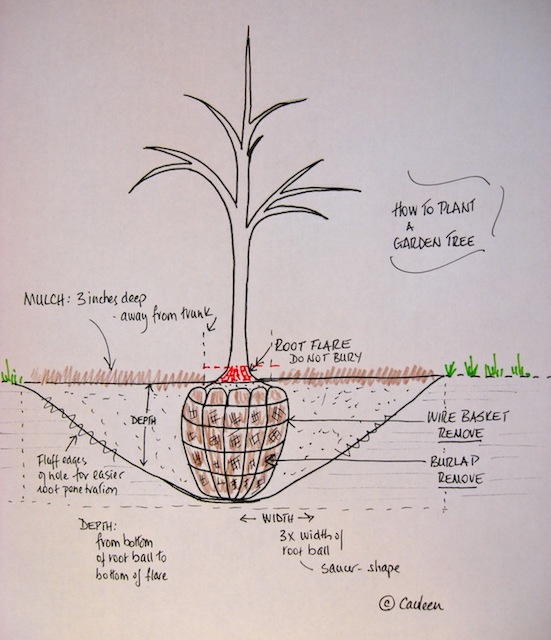 HOW TO PLANT
A
GARDEN TREE
MULCH: 3 inches deep
- away from trunk
ROOT FLARE
DO NOT BURY
DEPTH
WIRE BASKET
REMOVE
BURLAP
REMOVE
Fluff edges
of hole for easier
root penetration
DEPTH:
from bottom
of root ball to
bottom of flare
WIDTH
3x width of
root ball
saucer-shape
©